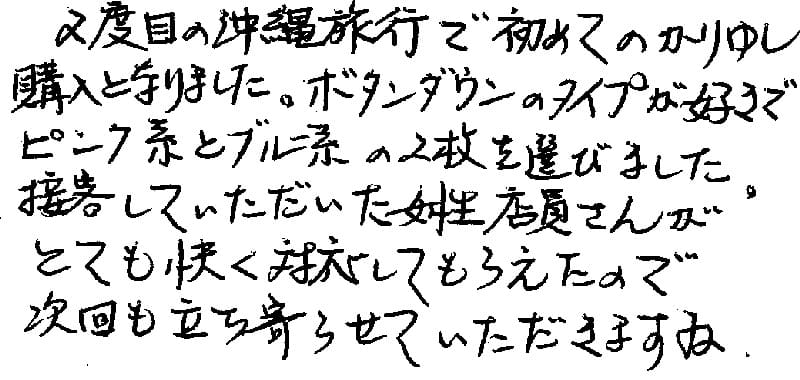 2度目の沖縄旅行で初めてのかりゆし
購入となりました。ボタンダウンのタイプが好きで
ピンク系とブルー系の2枚を選びました。
接客していただいた女性店員さんが
とても快く対応してもらえたので
次回も立ち寄らせていただきますね.